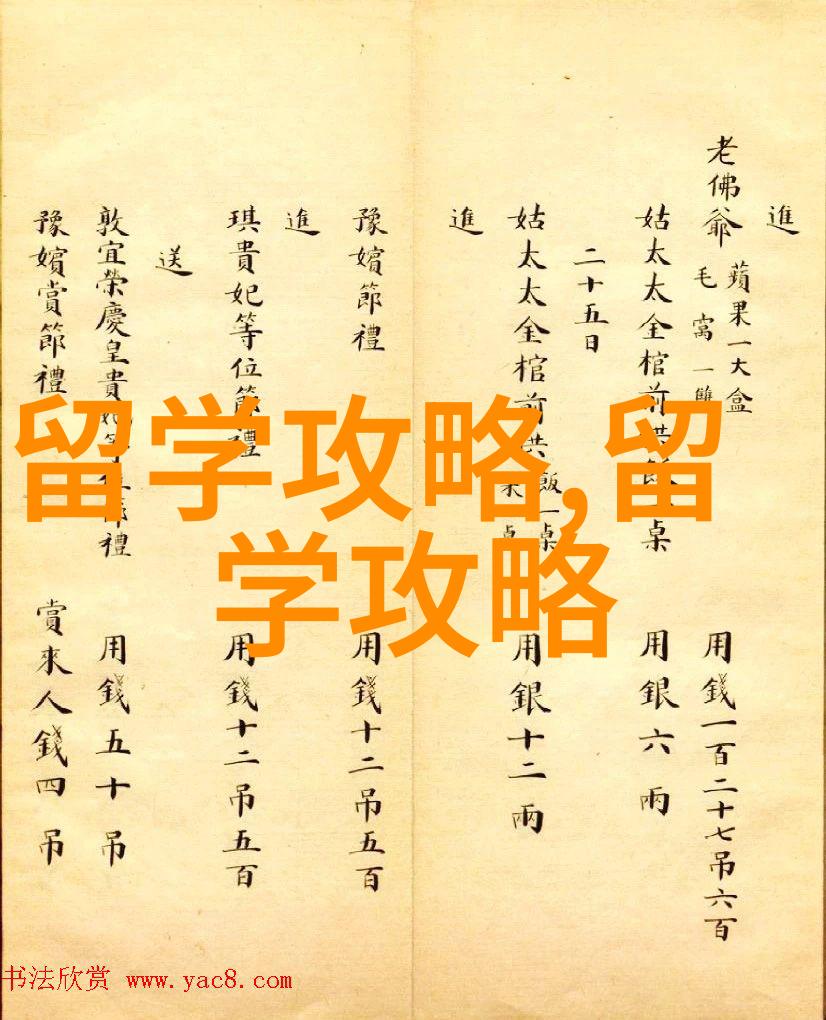 進
老佛爺 蘋果一大盒 毛窩一雙 用錢一百二十七吊六百
姑太太金棺前供飯一桌 用銀六兩
二十五日
姑太太金棺前供飯一桌 果桌 用銀十二兩
進
豫嬪節禮 用錢十二吊五百
進
琪貴妃等位節禮 用錢十二吊五百
送
敦宜榮慶皇貴妃等位節禮 用錢五十吊
豫嬪賞節禮 賞來人錢四吊
留学攻略,留
学攻略
书法欣赏 www.yac8.com